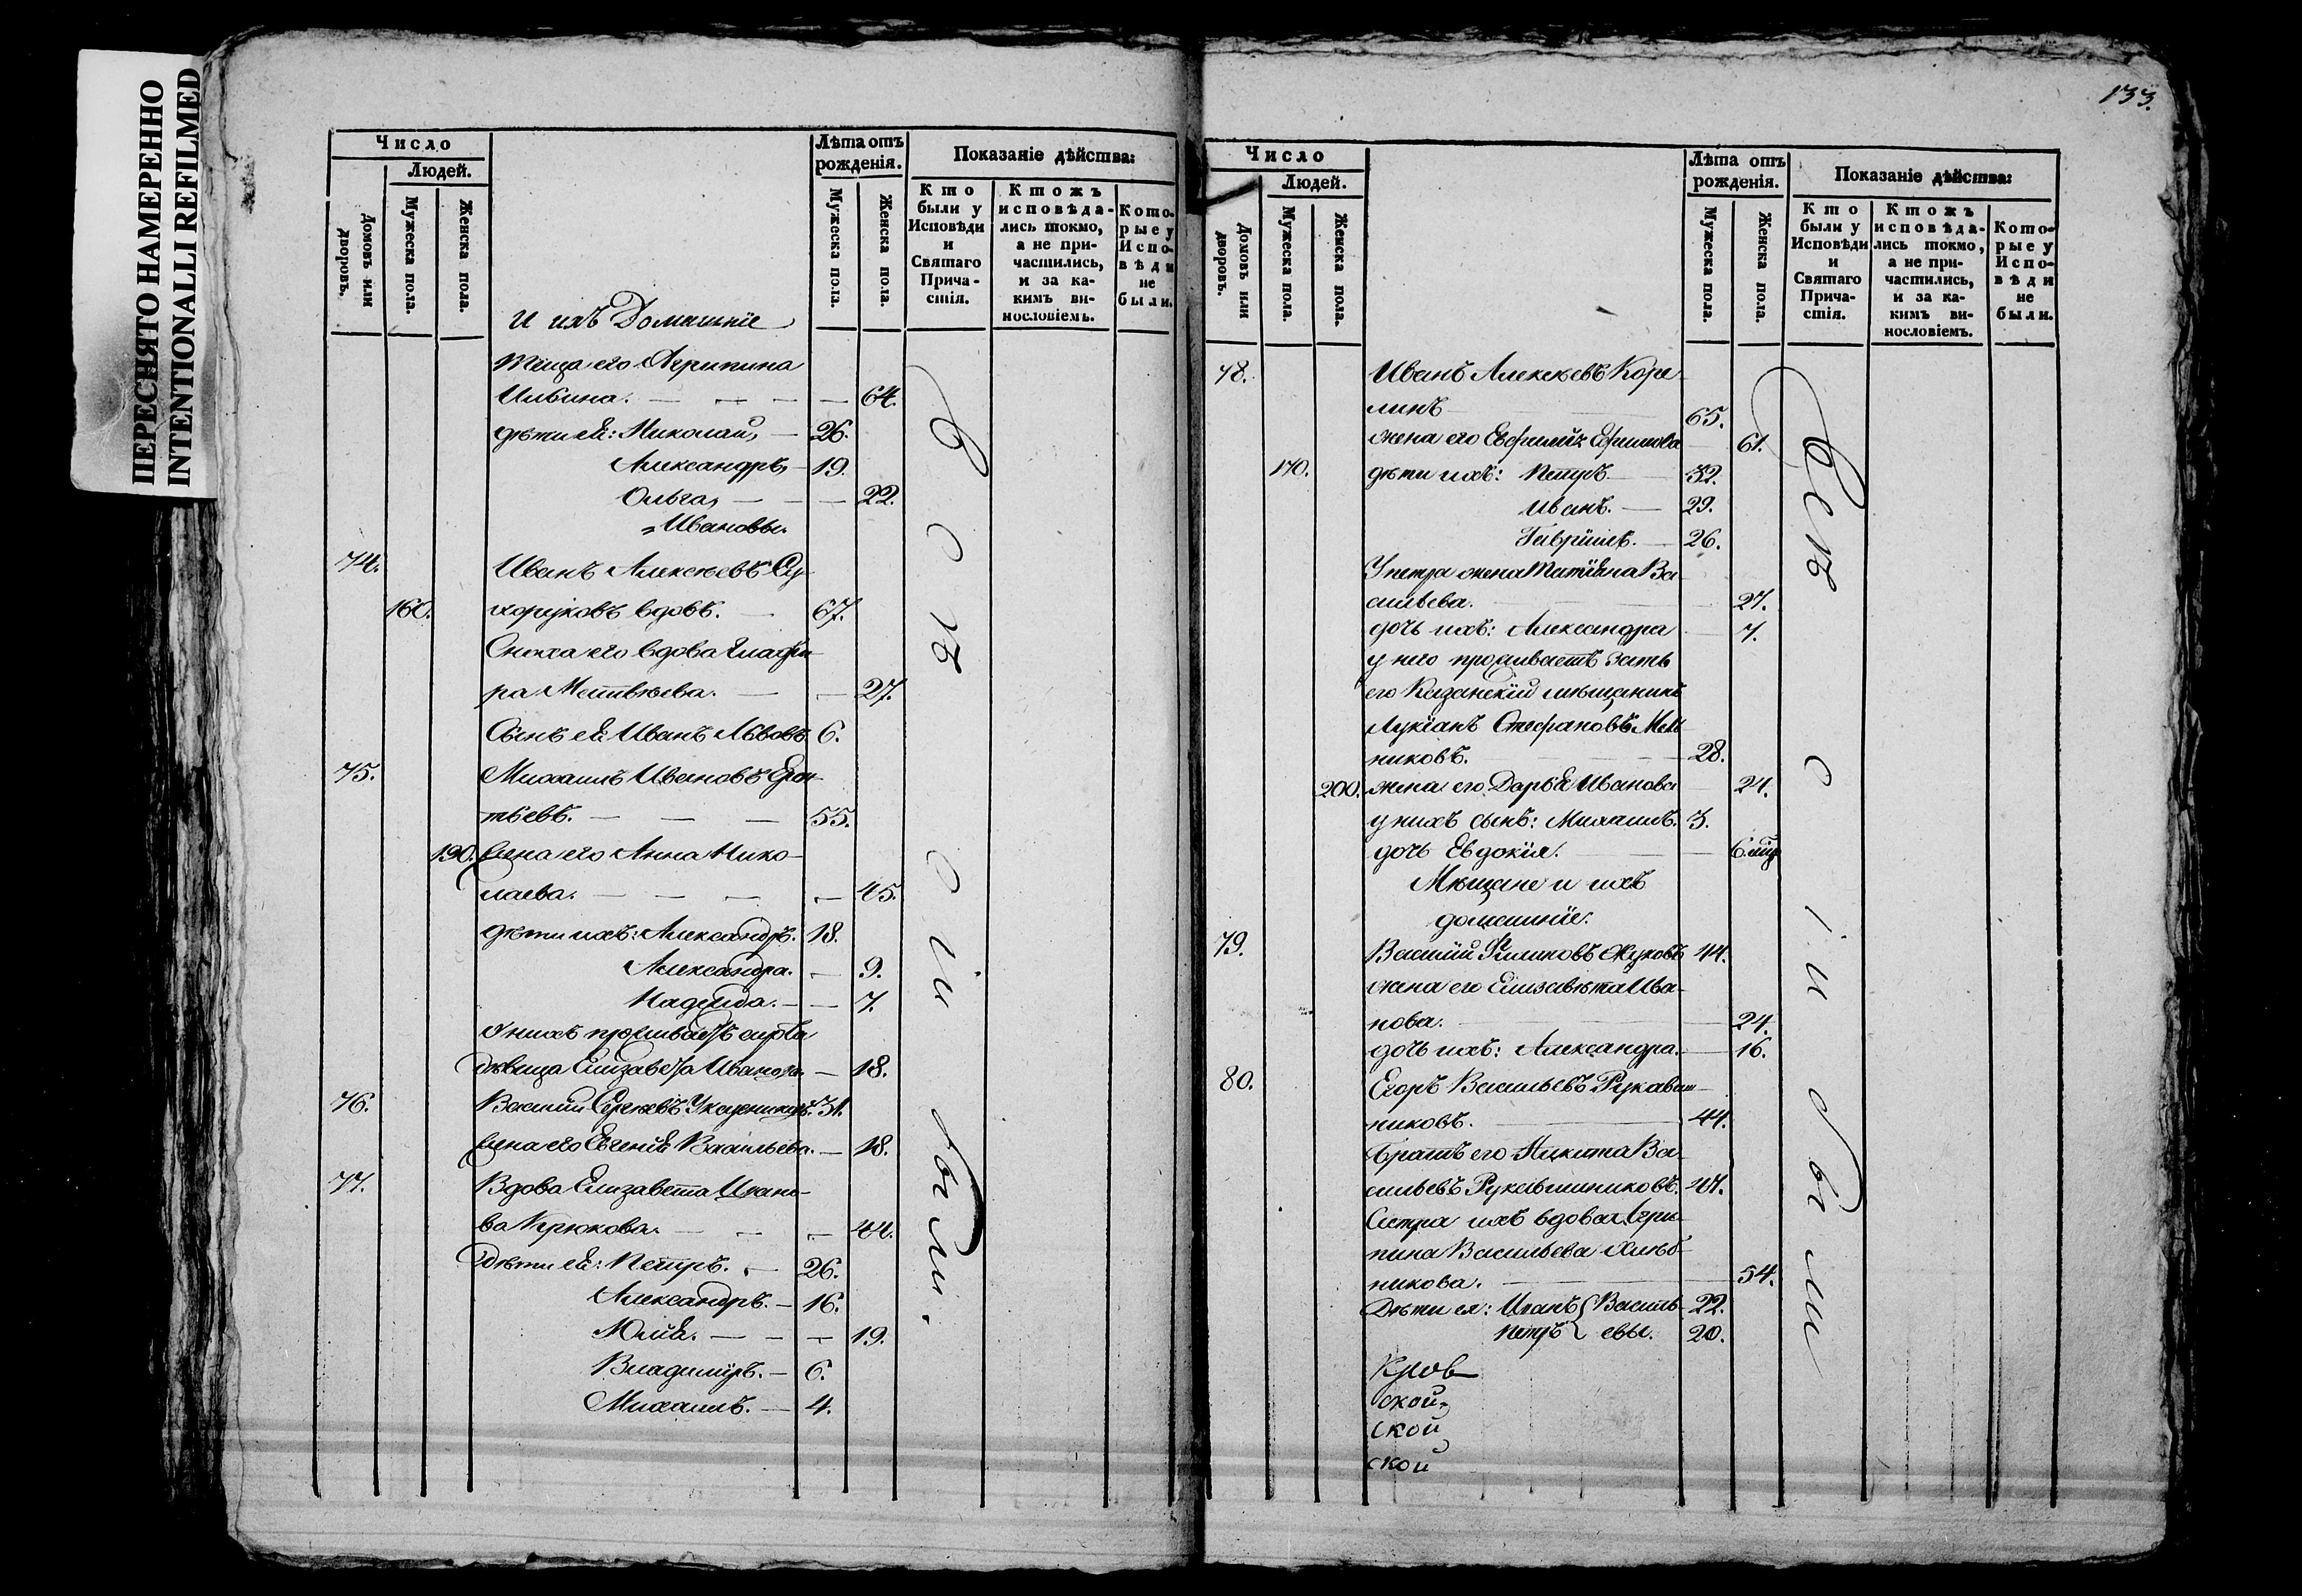 ПЕРЕСНЯТО НАМЕРЕННО
INTENTIONALLI REFILMED
Число
Людей.
Домовъ или дворовъ.
Мужеска пола.
Женска пола.
Лѣта отъ рожденія.
Мужеска пола.
Женска пола.
Показаніе дѣйства:
Кто были у Исповѣди и Святаго Прича-стія.
Ктожъ исповѣда-лись токмо, а не при-частились, и за ка-кимъ ви-нословіемъ.
Кото-рые у Испо-вѣди не были.
и ихъ Домашніе
теща его Агрипина
Ильина. — — — — 64.
дѣти ея: Николай, — 26.
Александръ, — 19.
Ольга, — — — 22.
Ивановы.
74. Иванъ Алексѣевъ Су-
160. хоруковъ вдовъ. — 67.
Сноха его вдова Глафи-
ра Матвѣева. — — 27.
Сынъ ея Иванъ Львовъ 6.
75. Михаилъ Ивановъ
тьевъ. — — — 55.
190. жена его Анна Нико-
лаева. — — — — 45.
дѣти ихъ: Александръ. 18.
Александра. — 9.
Надежда. — — 7.
У нихъ проживаетъ сирота
дѣвица Елизавета Иванова. — 18.
76. Василий Сергѣевъ 31.
жена его Евгенія Васильева. — 18.
77. Вдова Елизавета Ивано-
ва Крюкова. — — — 44.
Дѣти ея: Петръ. — 26.
Александръ. — 16.
Юлія. — — — 19.
Владиміръ. — 6.
Михаилъ. — 4.
Всѣ сіи были.
133.
Число
Людей.
Домовъ или дворовъ.
Мужеска пола.
Женска пола.
Лѣта отъ рожденія.
Мужеска пола.
Женска пола.
Показаніе дѣйства:
Кто были у Исповѣди и Святаго Прича-стія.
Ктожъ исповѣда-лись токмо, а не при-частились, и за ка-кимъ ви-нословіемъ.
Кото-рые у Испо-вѣди не были.
78. Иванъ Алексѣевъ Коре-
линъ — 65.
жена его Евфимія Ефимова — 61.
170. дѣти ихъ: Петръ — 32.
Иванъ. — 29.
Гавріилъ. — 26.
У петра жена Татіяна Ва-
сильева. — 27.
дочь ихъ: Александра — 7.
у него проживаетъ зять
его Казанскій мѣщанинъ
Лукіанъ Стефановъ Мель-
никовъ. — 28.
200. жена его Дарья Иванова — 24.
у нихъ сынъ: Михаилъ. 3.
дочь Евдокія. — 6.
Мѣщане и ихъ
домашніе.
79. Василій Филиповъ Жуковъ 44.
жена его Елизавѣта Ива-
нова. — 24.
дочь ихъ: Александра. — 16.
80. Егоръ Васильевъ Рукавиш-
никовъ. — 44.
Братъ его Никита Ва-
сильевъ Рукавишниковъ. 41.
Сестра ихъ вдова Агри-
пина Васильева Хлѣб-
никова. — 54.
Дѣти ея: Иванъ } Василь- 22.
Петръ } евы. 20.
Кров
ской
ской
ской
Всѣ сіи были